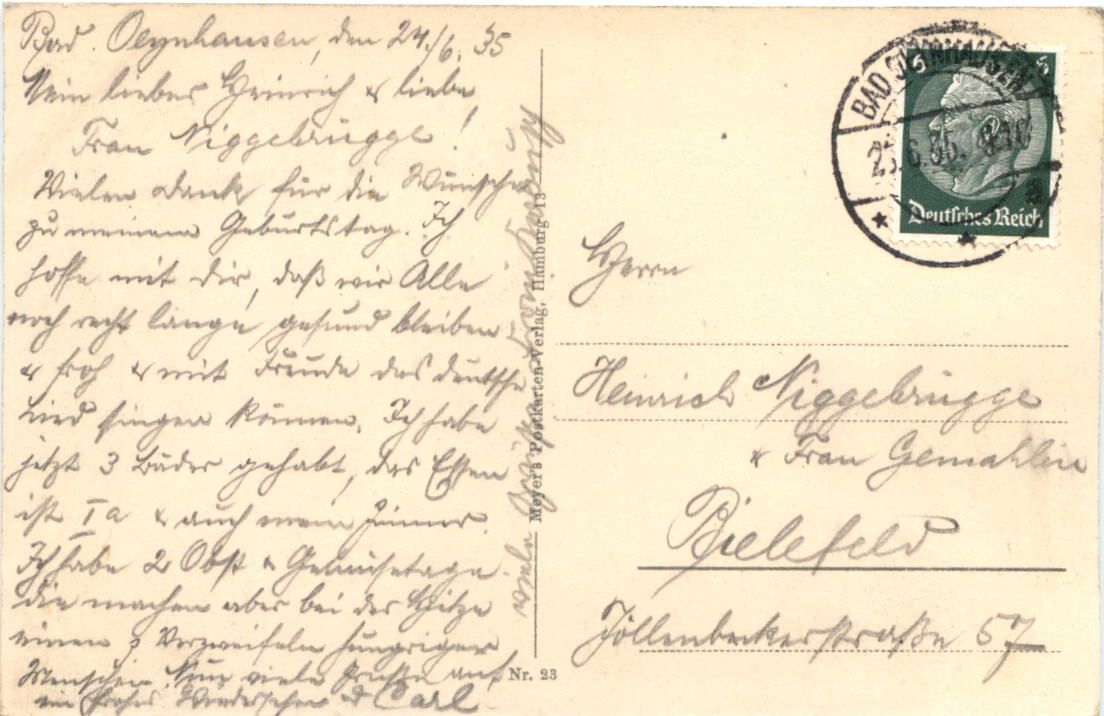 Bad. Oeynhausen, den 24./6. 35
Mein lieber Heinrich & liebe
Frau Niggebrügge!
Vielen Dank für die Wünsche
zu meinem Geburtstag. Ich
hoffe mit dir, daß wir Alle
noch recht lange gesund bleiben
& froh & mit Freude das deutsche
Lied singen können. Ich habe
jetzt 3 Bäder gehabt, das Essen
ist Ia & auch mein Zimmer
Ich habe 2 Obst & Gemüsetage
die machen aber bei der Hitze
einen z Verzweifeln hungrigen
Menschen. Nun viele Grüße auf
ein frohes Wiedersehen Carl
viele Grüße von
Meyer's Postkarten-Verlag, Hamburg 13
Nr. 23
BAD OEYNHAUSEN
25.6.35. 8-10
a
6 6
Deutsches Reich
Herrn
Heinrich Niggebrügge
& Frau Gemahlin
Bielefeld
Jöllenbeckerstraße 57